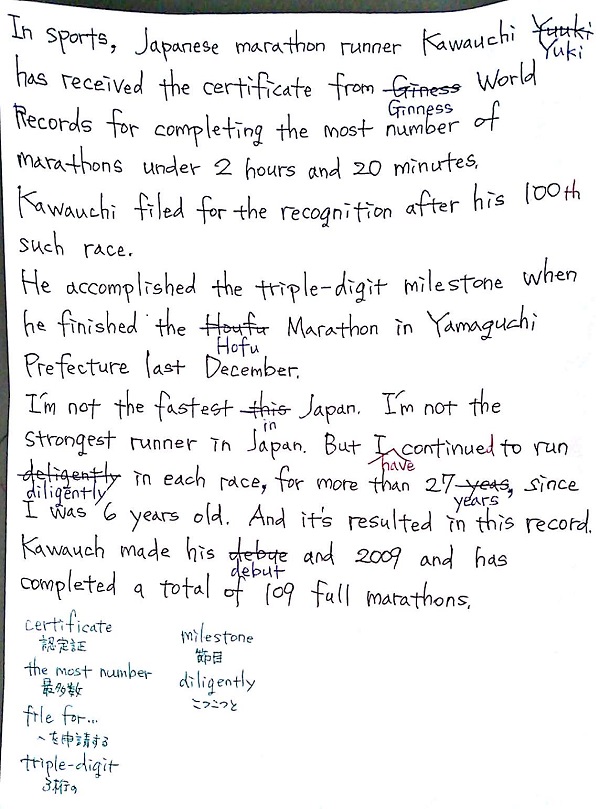 In sports, Japanese marathon runner Kawauchi Yuuki
Yuki
has received the certificate from Giness World
Ginness
Records for completing the most number of
marathons under 2 hours and 20 minutes.
Kawauchi filed for the recognition after his 100th
such race.
He accomplished the triple-digit milestone when
he finished the Houfu Marathon in Yamaguchi
Hofu
Prefecture last December.
I'm not the fastest this Japan. I'm not the
in
strongest runner in Japan. But I continued to run
have
deligently in each race, for more than 27 yeas, since
diligently years
I was 6 years old. And it's resulted in this record.
Kawauch made his debue and 2009 and has
debut
completed a total of 109 full marathons.
certificate
認定証
the most number
最多数
file for...
〜を申請する
triple-digit
3桁の
milestone
節目
diligently
こつこつと